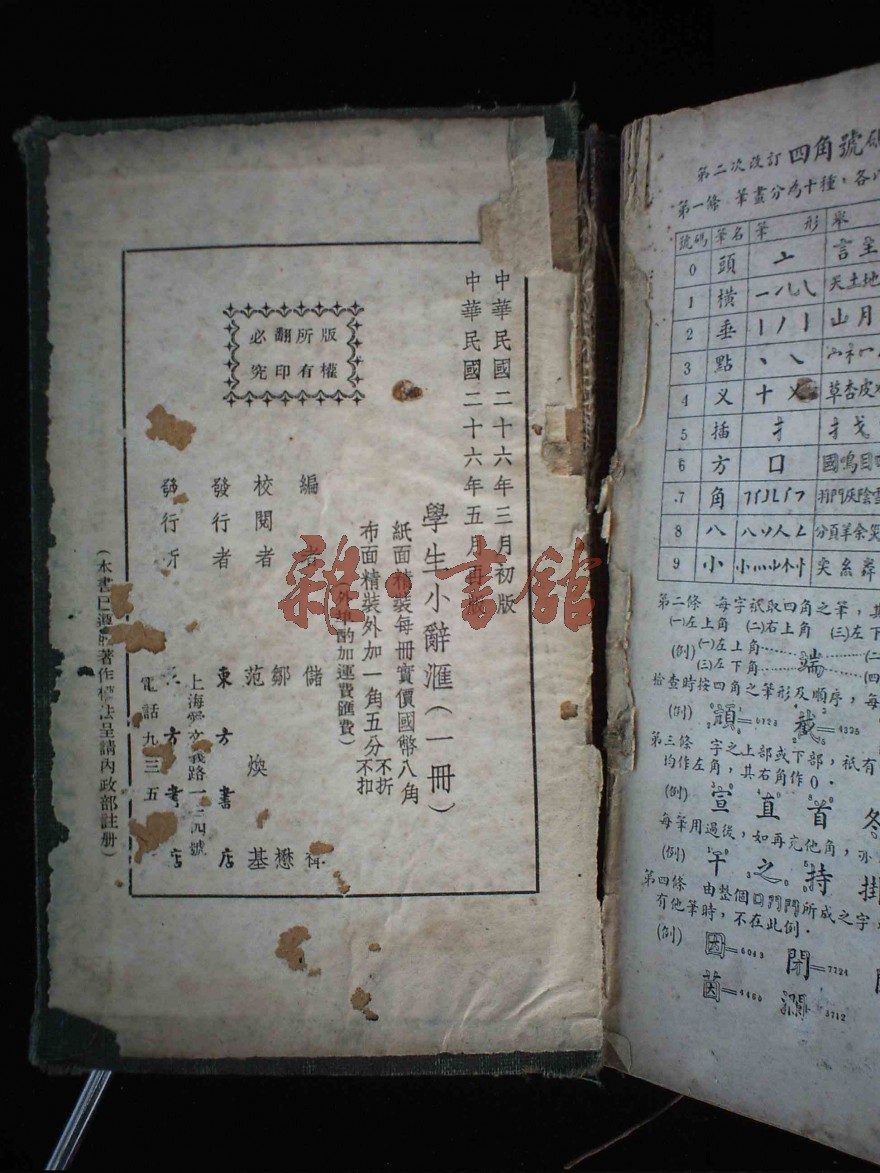 中華民國二十六年三月初版
中華民國二十六年五月再版
學生小辭滙（一冊）
紙面精裝每冊實價國幣八角
布面精裝外加一角五分
不折不扣
外埠酌加運費匯費）
編者 儲禕
鄒懋
校閱者 范煥基
發行者 東方書店
發行所 東方書店
上海愛文義路一二四號
電話九三五
版權所有
翻印必究
（本書已遵照著作權法呈請內政部註册）
雜·書館
第二次改訂 四角號碼
第一條 筆畫分為十種，各
號碼 筆名 筆形 舉
0 頭 亠 言
1 橫 天土地
2 垂 山月
3 點
4 义 十 草杏皮
5 插 扌 扌戈
6 方 口 國鳴目
7 角 陰雪
8 八 八 分頁羊余災
9 小 小
第二條 每字祇取四角之筆，其
(一)左上角 (二)右上角 (三)左下
(例) (一)左上角 端
(三)左下角
檢查時按四角之筆形及順序，每
(例) 頭 截=4325
第三條 字之上部或下部，祇有
均作左角，其右角作0．
(例) 宣 直 首 冬
每筆用過後，如再充他角，亦
(例) 干 之 持 掛
第四條 由整個囗門鬥所成之字，
有他筆時，不在此例．
(例) 因=6043 閉=7724
茵=4460 瀾=3712